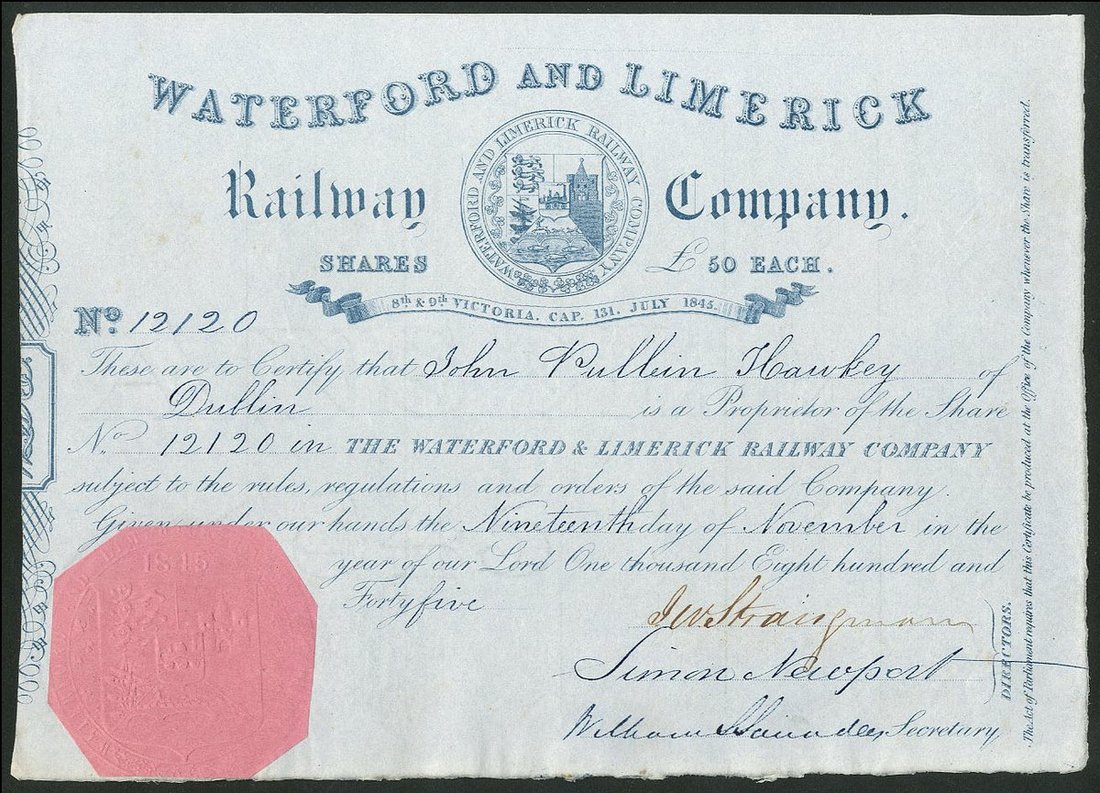 WATERFORD AND LIMERICK
Railway Company.
WATERFORD AND LIMERICK RAILWAY COMPANY
SHARES £ 50 EACH.
8th & 9th VICTORIA. CAP. 131. JULY 1845.
No. 12120
These are to Certify that John Pullein Hawkey of
Dublin is a Proprietor of the Share
No. 12120 in THE WATERFORD & LIMERICK RAILWAY COMPANY
subject to the rules, regulations and orders of the said Company.
Given under our hands the Nineteenth day of November in the
year of our Lord One thousand Eight hundred and
Forty five
Simon Newport
William Saunders, Secretary
DIRECTORS.
The Act of Parliament requires that this Certificate be produced at the Office of the Company whenever the Share is transferred.
1845